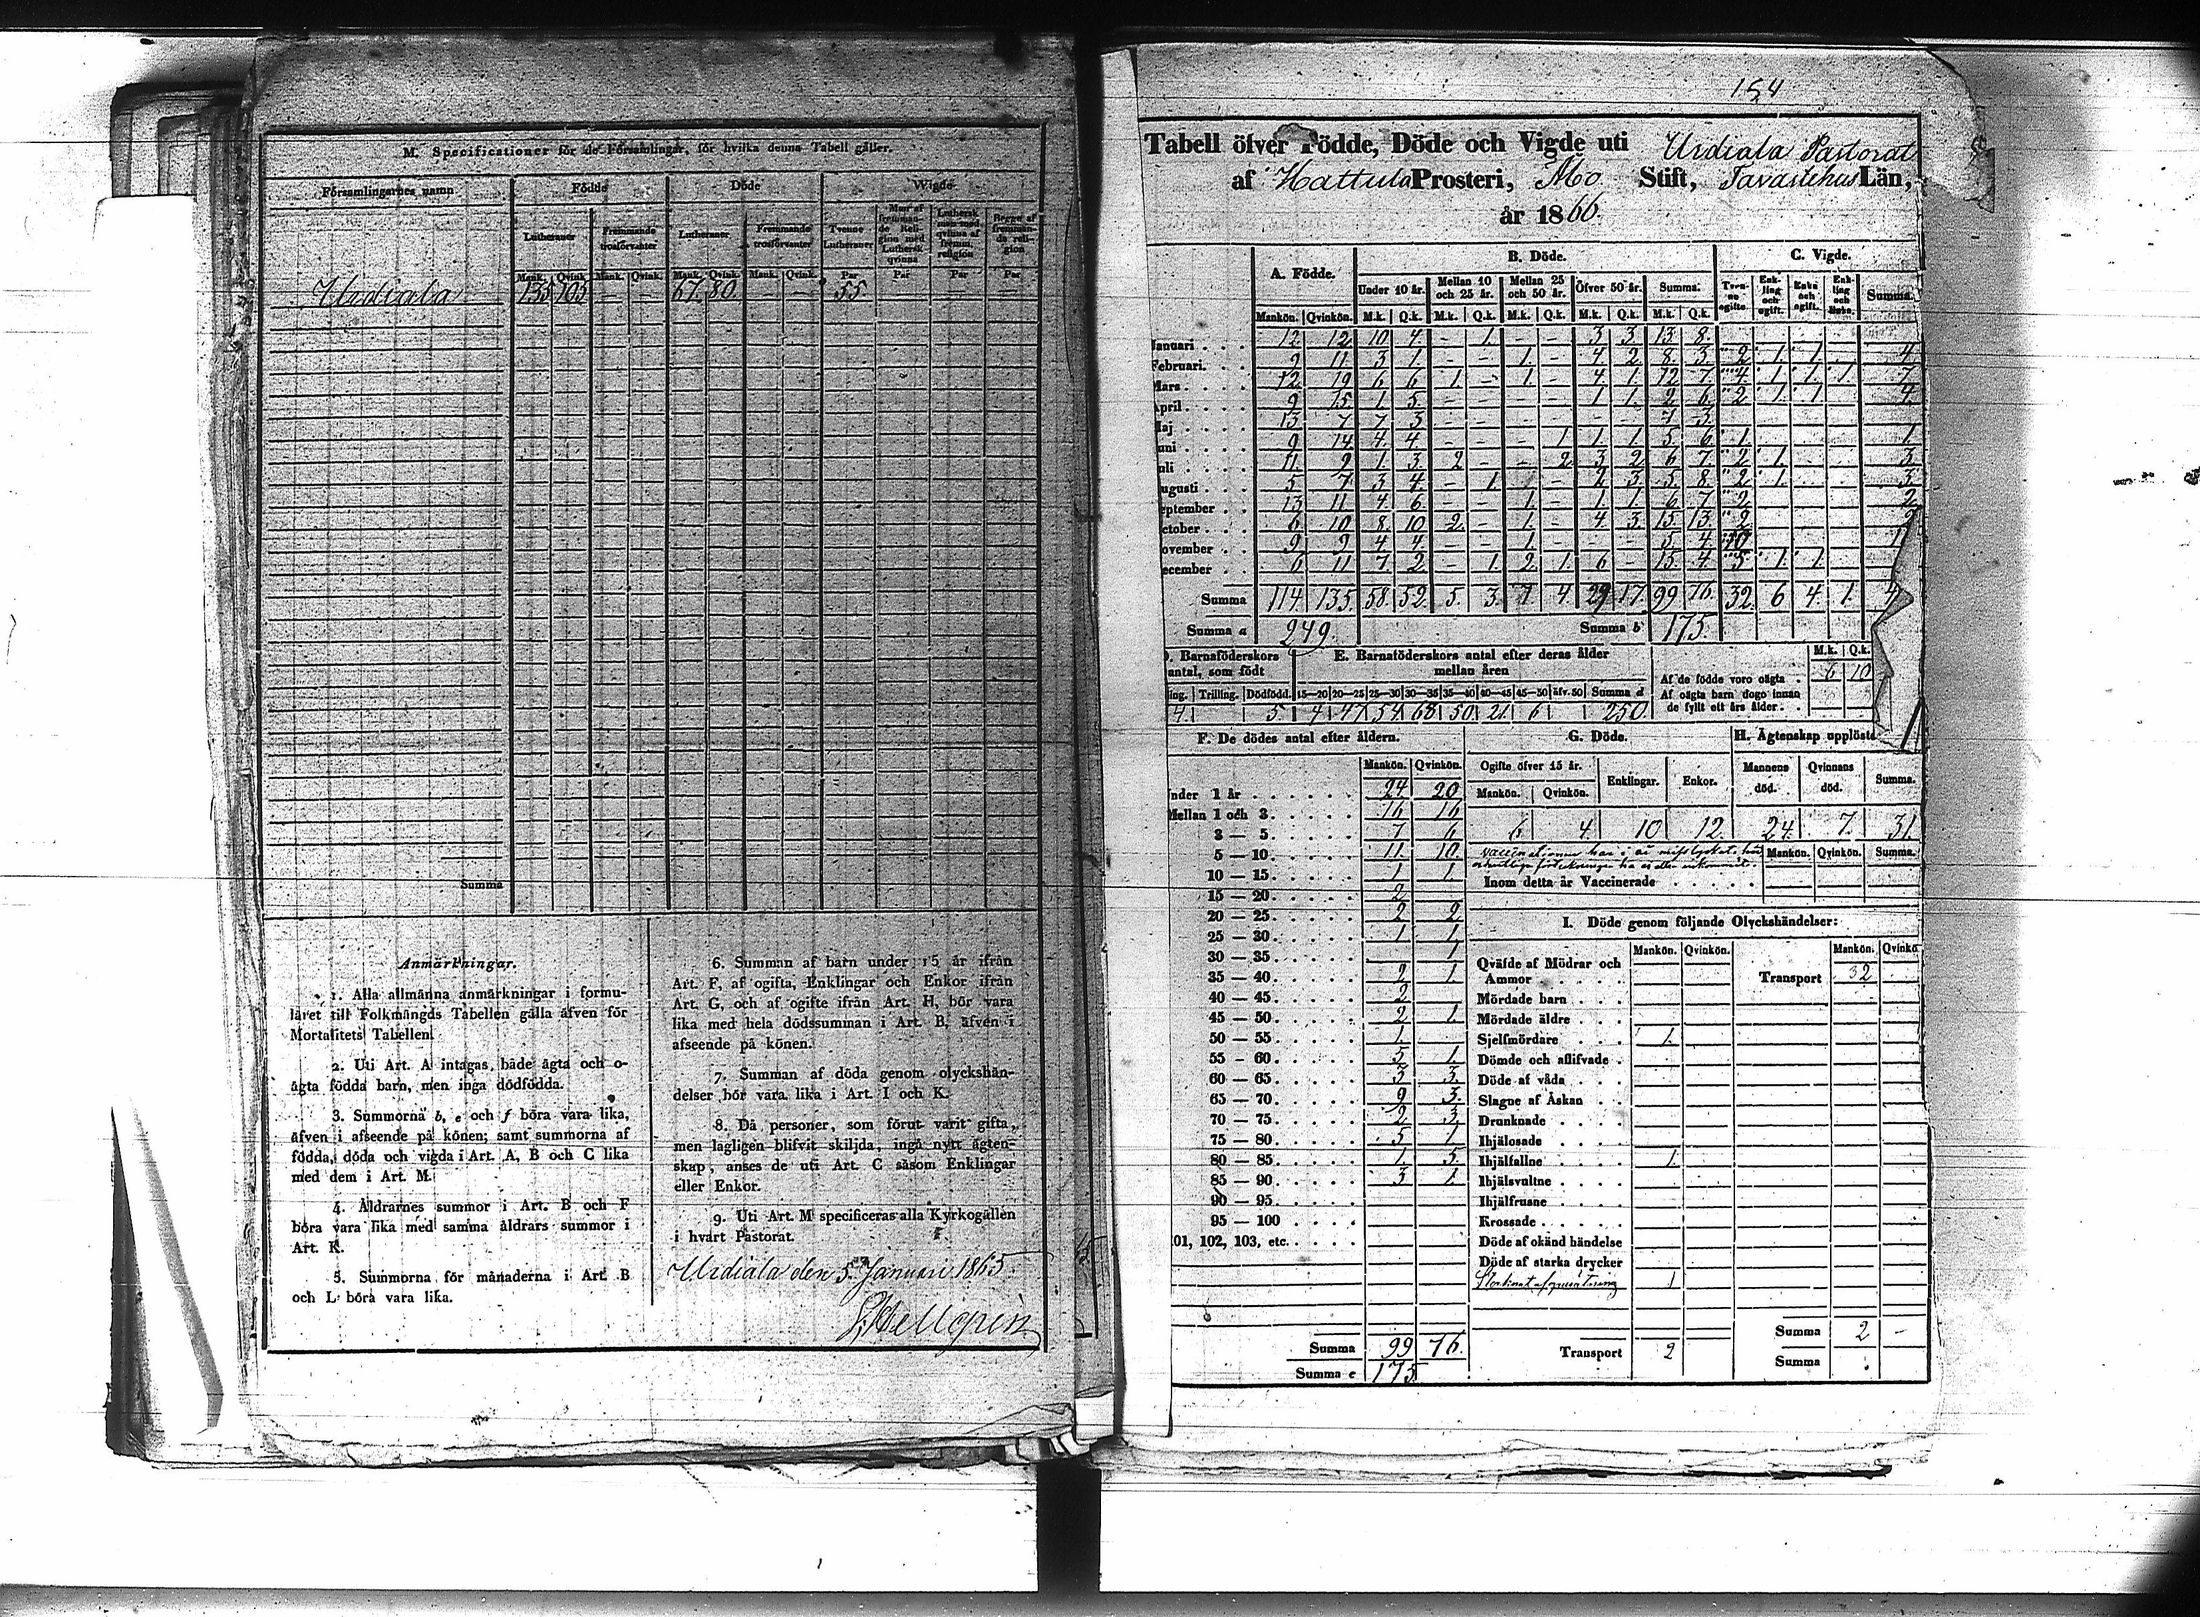 M. Specificationer för de Församlingar, för hvilka denna Tabell gäller.
Församlingarnes namn Födde Döde Wigde
Lutheraner Fremmande trosförvanter Lutheraner Fremmande trosförvanter Tvenne Lutheraner Man af fremmande Religion med Luthersk qvinna Luthersk man med qvinna af fremm. religion Begge af fremmande religion
Mank. Qvink. Mank. Qvink. Mank. Qvink. Mank. Qvink. Par Par Par Par
Urdiala 135 105 — — 67 80 — — 55
Summa
Anmärkningar.
1. Alla allmänna anmärkningar i formu-
läret till Folkmängds Tabellen gälla äfven för
Mortalitets Tabellen.
2. Uti Art. A intagas både ägta och o-
ägta födda barn, men inga dödfödda.
3. Summorna b, e och f böra vara lika,
äfven i afseende på könen; samt summorna af
födda, döda och vigda i Art. A, B och C lika
med dem i Art. M.
4. Åldrarnes summor i Art. B och F
böra vara lika med samma åldrars summor i
Art. K.
5. Summorna för månaderna i Art. B
och L böra vara lika.
6. Summan af barn under 15 år ifrån
Art. F, af ogifta, Enklingar och Enkor ifrån
Art. G, och af ogifte ifrån Art. H, bör vara
lika med hela dödssumman i Art. B, äfven i
afseende på könen.
7. Summan af döda genom olyckshän-
delser bör vara lika i Art. I och K.
8. Då personer, som förut varit gifta,
men lagligen blifvit skiljda, ingå nytt ägten-
skap, anses de uti Art. C såsom Enklingar
eller Enkor.
9. Uti Art. M specificeras alla Kyrkogällen
i hvart Pastorat.
Urdiala den 5 Januari 1865.
154
Tabell öfver Födde, Döde och Vigde uti Urdiala Pastorat
af Hattula Prosteri, Åbo Stift, Tavastehus Län,
år 1866.
A. Födde. B. Döde. C. Vigde.
Under 10 år. Mellan 10 och 25 år. Mellan 25 och 50 år. Öfver 50 år. Summa. Tvenne ogifte. Enkling och ogift. Enka och ogift. Enkling och Enka. Summa.
Mankön. Qvinkön. M.k. Q.k. M.k. Q.k. M.k. Q.k. M.k. Q.k. M.k. Q.k.
Januari . . . 12 12 10 4 - 1 - - 3 3 13 8
Februari . . . 9 11 3 1 - - 1 - 4 2 8 3 2 1 1 4
Mars . . . 12 19 6 6 1 - 1 - 4 1 12 7 4 1 1 1 7
April . . . 9 15 1 5 - - - - 1 1 2 6 2 1 1 4
Maj . . . 13 7 7 3 - - - - - - 7 3
uni . . . 9 14 4 4 - - - 1 1 1 5 6 1 1
uli . . . 11 9 1 3 2 - - 2 3 2 6 7 2 1 3
ugusti . . . 5 7 3 4 - 1 - 2 3 5 8 2 1 3
eptember . . 13 11 4 6 - - 1 - 1 1 6 7 2 2
ctober . . . 6 10 8 10 2 - 1 - 4 3 15 13 2 2
ovember . . 9 9 4 4 - - 1 - - - 5 4 10 1
ecember . . 6 11 7 2 - 1 2 1 6 - 15 4 5 1 1
Summa 114 135 58 52 5 3 7 4 29 17 99 76 32 6 4 1 4
Summa a 249. Summa b 175.
D. Barnaföderskors antal, som födt
E. Barnaföderskors antal efter deras ålder mellan åren
M.k. Q.k.
Af de födde voro oägta . 6 10
Af oägta barn dogo innan
de fyllt ett års ålder . .
ling. Trilling. Dödfödd. 15—20 20—25 25—30 30—35 35—40 40—45 45—50 öfv. 50 Summa d
4 5 4 47 54 68 50 21 6 250.
F. De dödes antal efter åldern. G. Döde. H. Ägtenskap upplöste
Mankön. Qvinkön. Ogifte öfver 15 år. Enklingar. Enkor. Mannens död. Qvinnans död. Summa.
Mankön. Qvinkön.
6 4 10 12 24 7 31
nder 1 år . . . 24 20
Mellan 1 och 3 . . . 16 16
3 — 5 . . . 7 6
5 — 10 . . . 11 10
10 — 15 . . . 1 1
15 — 20 . . . 2
20 — 25 . . . 2 2
25 — 30 . . . 1 1
30 — 35 . . . 1
35 — 40 . . . 2 1
40 — 45 . . . 2
45 — 50 . . . 2 1
50 — 55 . . . 1
55 - 60 . . . 5 1
60 — 65 . . . 3 3
65 — 70 . . . 9 3
70 — 75 . . . 2 3
75 — 80 . . . 5 1
80 — 85 . . . 1 5
85 — 90 . . . 3 1
90 — 95 . . .
95 — 100 . . .
101, 102, 103, etc. . . .
Summa 99 76
Summa e 175
Mankön. Qvinkön. Summa.
Inom detta år Vaccinerade . . . . .
I. Döde genom följande Olyckshändelser:
Mankön. Qvinkön. Mankön. Qvinkö
Qväfde af Mödrar och
Ammor . . . .
Transport 32
Mördade barn . . .
Mördade äldre . . .
Sjelfmördare . . . 1
Dömde och aflifvade .
Döde af våda . . .
Slagne af Åskan . .
Drunknade . . . .
Ihjälosade . . . .
Ihjälfallne . . . . 1
Ihjälsvultne . . . .
Ihjälfrusne . . . .
Krossade . . . . .
Döde af okänd händelse
Döde af starka drycker
1
Transport 2
Summa 2 -
Summa